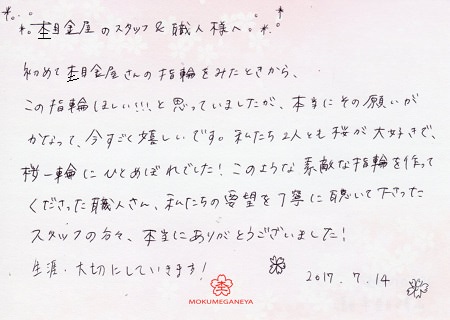 杢目金屋のスタッフ&職人様へ
初めて杢目金屋さんの指輪をみたときから、
この指輪ほしい!!!と思っていましたが、本当にその願いが
かなって、今すごく嬉しいです。私たち2人とも桜が大好きで、
桜一輪にひとめぼれでした!このような素敵な指輪を作って
くださった職人さん、私たちの要望を丁寧に聴いて下さった
スタッフの方々、本当にありがとうございました!
生涯、大切にしていきます!
2017.7.14
MOKUMEGANEYA